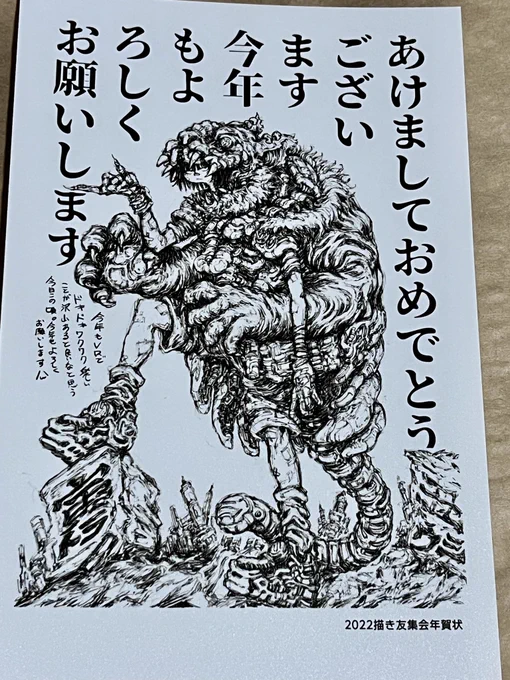 あけましておめでとう
ござい
ます
今年
もよ
ろしく
お願いします
今年もヒロで
ドキドキワクワク楽しい
ことが沢山あると良いなと思う
今日この頃。今年もよろしく
お願いします
2022描き友集会年賀状